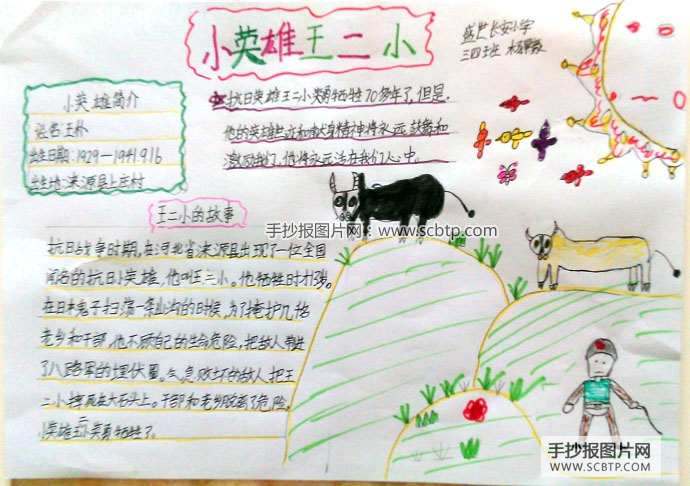 小英雄王二小
盛世长安小学
三四班
小英雄简介
姓名:王朴
出生日期:1929—1941.9.16
出生地:涞源县上庄村
抗日英雄王二小英勇牺牲70多年了,但是,
他的英雄 和献身精神将永远鼓舞和
激励我们,他将永远活在我们心中。
王二小的故事
手抄报图片网:www.scbtp.com
抗日战争时期,在河北省涞源县出现了一位全国
闻名的抗日小英雄,他叫王二小。他牺牲时才13岁。
在日本鬼子扫荡一条山沟的时候,为了掩护几名
老乡和干部,他不顾自己的生命危险,把敌人带进
了八路军的埋伏圈。气急败坏的敌人把王
二小摔死在大石头上。干部和老乡脱离了危险,
小英雄王二小英勇牺牲了。
手抄报图片网
WWW.SCBTP.COM